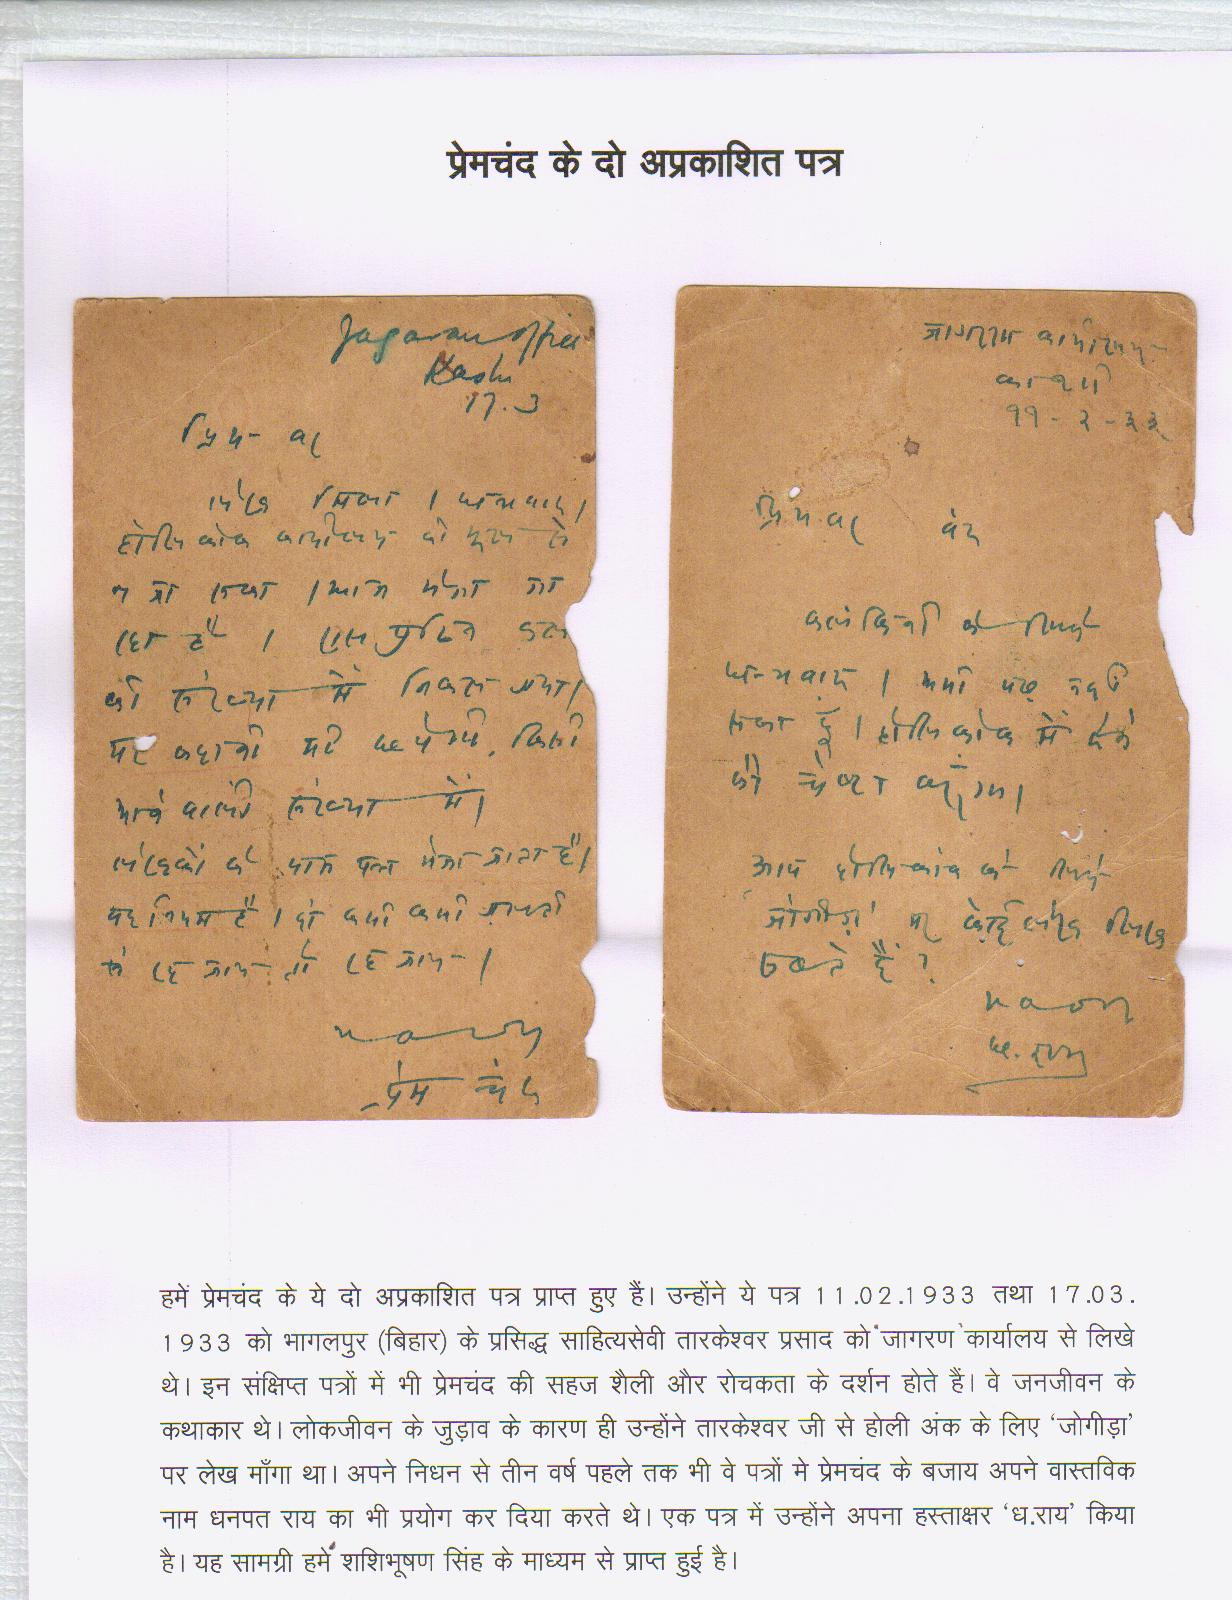 प्रेमचंद के दो अप्रकाशित पत्र
Jagaran Office
Kashi
17.3
प्रिय वर
लेख मिला । धन्यवाद।
होलिकांक कार्यालय की भूल से
न जा सका । आज भेजा जा
रहा है ।
की संख्या में निकल गया।
यह कहानी भी छपेगी, किसी
आने वाली संख्या में।
लेखकों के पास पत्र भेजा जाता है।
यह नियम है । हाँ कभी कभी ग़लती
से रह जाय तो रह जाय ।
प्रेम चंद
जागरण कार्यालय
काशी
११-२-३३
प्रिय वर वंदे
के लिये
धन्यवाद । अभी पढ़ नहीं
सका हूँ । होलिकांक में देने
की चेष्टा करूँगा।
आप होलिकांक के लिये
जोगीड़ा पर कोई लेख लिख
सकते हैं ?
ध. राय
हमें प्रेमचंद के ये दो अप्रकाशित पत्र प्राप्त हुए हैं। उन्होंने ये पत्र 11.02.1933 तथा 17.03.
1933 को भागलपुर (बिहार) के प्रसिद्ध साहित्यसेवी तारकेश्वर प्रसाद को जागरण कार्यालय से लिखे
थे। इन संक्षिप्त पत्रों में भी प्रेमचंद की सहज शैली और रोचकता के दर्शन होते हैं। वे जनजीवन के
कथाकार थे। लोकजीवन के जुड़ाव के कारण ही उन्होंने तारकेश्वर जी से होली अंक के लिए 'जोगीड़ा'
पर लेख माँगा था। अपने निधन से तीन वर्ष पहले तक भी वे पत्रों मे प्रेमचंद के बजाय अपने वास्तविक
नाम धनपत राय का भी प्रयोग कर दिया करते थे। एक पत्र में उन्होंने अपना हस्ताक्षर 'ध.राय' किया
है। यह सामग्री हमें शशिभूषण सिंह के माध्यम से प्राप्त हुई है।